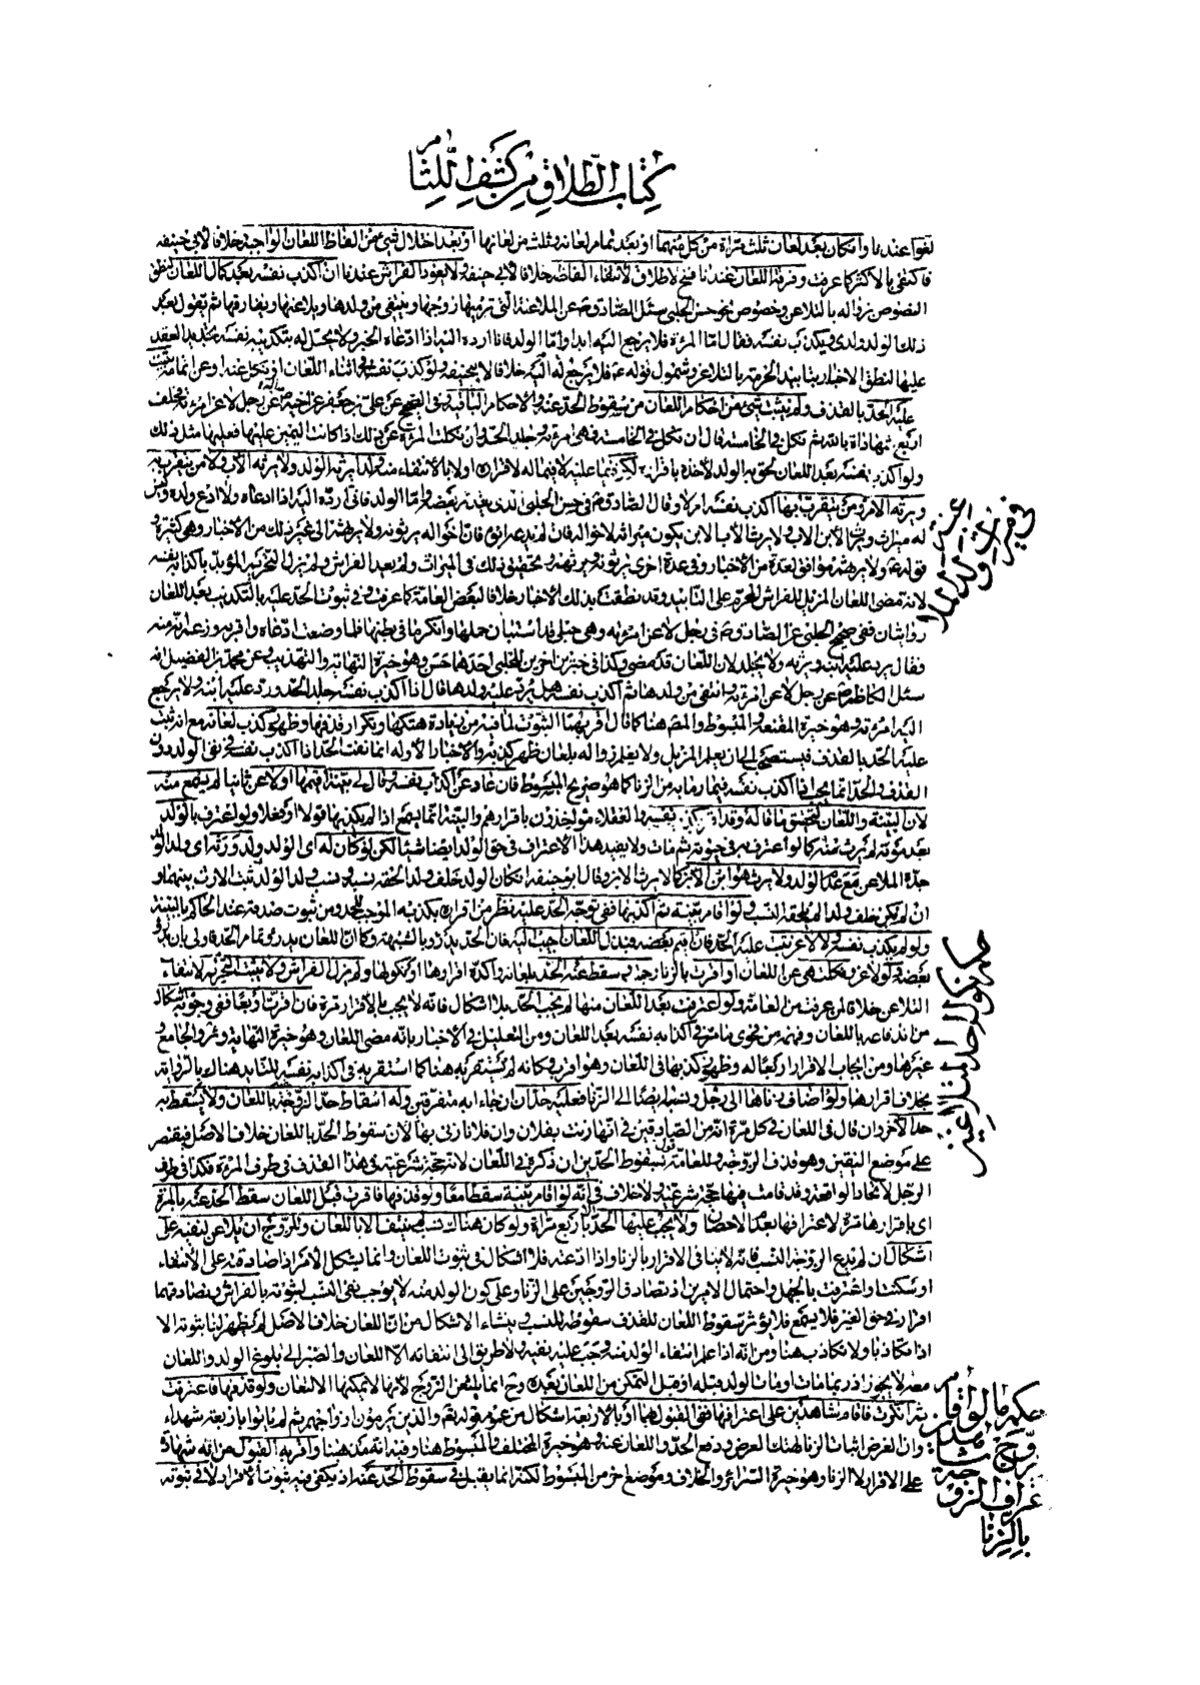 كتاب الطلاق من كشف اللثام
لغوا عندنا وان كان بعد لعان ثلث مراة من كل منهما او بعد تمام لعانه وثلث من لعانها او بعد اخلال شئ من الفاظ اللعان الواجبة خلافا لابي حنيفه
فاكتفى بالاكثر كما عرفت وفرقة اللعان عندنا فسخ لاطلاق لانتفاء الفاظه خلافا لابي حنيفة ولا يعود الفراش عندنا ان اكذب نفسه بعد كمال اللعان لنطق
النصوص بزواله بالتلاعن وخصوص نحو حسن الحلبي سئل الصادق ع عن الملاعنة التي ترميها زوجها وينتفي من ولدها ويلاعنها ويفارقها ثم يقول بعد
ذلك الولد ولدي ويكذب نفسه فقال اما المرءة فلا يرجع اليه ابدا واما الولد فانا ارده اليه اذا ادعاه الخبر ولا يحل له بتكذيبه نفسه تجديد العقد
عليها لنطق الاخبار بتابيد الحرمة بالتلاعن وشمول قوله ع فلا يرجع اليه خلافا لابيحنيفه ولو كذب نفسه في اثناء اللعان او نكل عنه او عن اتمامه ثبت
عليه الحد بالقذف ولم يثبت شئ من احكام اللعان من سقوط الحد عنه والاحكام الباقية وفي الصحيح عن علي بن جعفر عن اخيه ع عن رجل لاعن امرءته فحلف
اربع شهاداة بالله ثم نكل في الخامسة قال ان نكل في الخامسة فهي امرءته وجلد الحد وان نكلت المرءة عن ذلك اذا كانت اليمين عليها فعليها مثل ذلك
ولو اكذب نفسه بعد اللعان لحق به الولد لاخذه باقراره لكن فيما عليه لا فيما له لاقراره اولا بالانتفاء منه ولذا يرثه الولد ولا يرثه الاب ولا من يتقرب به
وترثه الام ومن يتقرب بها اكذب نفسه ام لا وقال الصادق ع في حسن الحلبي
له ميراث ويرث الابن الاب ولا يرث الاب الابن يكون ميراثه لاخواله فان لم يدعه ابوه فان اخواله يرثونه ولا يرثهم الى غير ذلك من الاخبار وهي كثيرة
قوله ع ولا يرثهم موافق لعدة من الاخبار وفي عدة اخرى يرثونه ويرثهم وتحقيق ذلك في الميراث ولم يعد الفراش ولم يزل التحريم المؤبد باكذابه نفسه
لانه مقتضى اللعان المزيل للفراش المحرم على التابيد وقد نطقت بذلك الاخبار خلافا لبعض العامة كما عرفت وفي ثبوت الحد عليه بالتكذيب بعد اللعان
روايتان ففي صحيح الحلبي عن الصادق ع في رجل لاعن امرءته وهي حبلى فلما استبان حملها وانكر ما في بطنها فلما وضعت ادعاه واقر به وزعم انه منه
فقال يرد عليه ابنه ويرثه ولا يجلد لان اللعان قد مضى وكذا في خبرين اخرين للحلبي احدهما حسن وهو خيرة النهاية والتهذيب وعن محمد بن الفضيل انه
سئل الكاظم ع عن رجل لاعن امرءته وانتفى من ولدها ثم اكذب نفسه هل يرد عليه ولدها قال اذا اكذب نفسه جلد الحد ورد عليه ابنه ولا يرجع
اليه امرءته وهو خيرة المقنعة والمبسوط والمص هنا كما قال اقربهما الثبوت لما فيه من زيادة هتكها وتكرار قذفها وظهور كذب لعانه مع انه ثبت
عليه الحد بالقذف فيستصحب الى ان يعلم المزيل ولا يعلم زواله بلعان ظهر كذبه والاخبار الاوله انما نفت الحد اذا اكذب نفسه في نفي الولد دون
القذف والحد انما يجب اذا اكذب نفسه فيما رماها به من الزنا كما هو صريح المبسوط فان عاد عن اكذاب نفسه وقال لي بينة اقيمها او لاعن ثانيا لم يسمع منه
لان البينة واللعان لتحقيق ما قاله وقد اقر بكذب نفسه والعقلاء مؤاخذون باقرارهم والبينة انما تسمع اذا لم يكذبها قولا او فعلا ولو اعترف بالولد
بعد موته لم يرث منه كما لو اعترف به في حيوته ثم مات ولا يفيد هذا الاعتراف في حق الولد ايضا شيئا لكن لو كان له اى الولد ولد ورثه اى ولد الولد
جده الملاعن مع عدم الولد ولا يرث هو ابن الابن كما لا يرث الابن وقال ابو حنيفه ان كان الولد خلف ولدا لحقه نسبه ونسب ولد الولد ثبت الارث بينهما و
ان لم يكن خلف ولدا لم يلحقه النسب ولو اقام بينة ثم اكذبها ففي توجه الحد عليه نظر من اقراره بكذبه الموجب للحد ومن ثبوت صدقه عند الحاكم بالبينة
ولو لم يكذب نفسه ولا لاعن ثبت عليه الحد فان اقيم بعضه فبذل اللعان اجيب اليه فان الحد يدرء بالشبهة وكما ان اللعان يدرء تمام الحد فاولى بان يدرء
بعضه ولو لاعن ونكلت هي عن اللعان او اقرت بالزنا رجمت وسقط عنه الحد بلعانه واكده اقرارها او نكولها ولم يزل الفراش ولا يثبت التحريم لانتفاء
التلاعن خلافا لمن عرفت من العامة ولو اعترفت بعد اللعان منها لم يجب الحد بلا اشكال فانه لا يجب بالاقرار مرة فان اقرت اربعا ففي وجوبه اشكال
من اندفاعه باللعان وفهمه من فحوى ما مر في اكذابه نفسه بعد اللعان ومن التعليل في الاخبار بانه مضى اللعان وهو خيرة النهاية وئر والجامع و
غيرها ومن ايجاب الاقرار اربعا له وظهور كذبها في اللعان وهو اقرب وكانه لم يستقربه هنا كما استقر به في اكذابه نفسه للتاييد هناك بالرواية
بخلاف اقرارها ولو اضاف زناها الى رجل ونسبه ايضا الى الزنا فعليه حدان ان جاءا به متفرقين وله اسقاط حد الزوجة باللعان ولا يسقط به
حد الآخر وان قال في اللعان في كل مرة انه من الصادقين في انها زنت بفلان وان فلانا زنى بها لان سقوط الحد باللعان خلاف الاصل فيقتصر
على موضع اليقين وهو قذف الزوجة وللعامة قول بسقوط الحدين ان ذكره في اللعان لانه حجة شرعية في هذا القذف في طرف المرءة فكذا في طرف
الرجل لاتحاد الواقعة وقد قامت فيها حجة شرعية ولا خلاف في انه لو اقام بينة سقطا معا ولو قذفها فاقرت قبل اللعان سقط الحد عنه بالمرة
اى باقرارها مرة لاعترافها بعدم الاحصان ولا يجب عليها الحد الا باربع مراة ولو كان هناك نسب لم ينتف الا باللعان وللزوج ان يلاعن لنفيه على
اشكال ان لم يدع الزوجة النسب فانه لا ينافي الاقرار بالزنا واذا ادعته فلا اشكال في ثبوت اللعان وانما يشكل الامر اذا صادقته على الانتفاء
او سكتت واعترفت بالجهل واحتمال الامرين اذ تصادق الزوجين على الزنا وعلى كون الولد منه لا يوجب نفي النسب لثبوته بالفراش وتصادقهما
اقرار في حق الغير فلا يسمع فلا يؤثر سقوط اللعان للقذف سقوطه للنسب ومنشاء الاشكال من ان اللعان خلاف الاصل لم يظهر لنا ثبوته الا
اذا تكاذبا ولا تكاذب هنا ومن انه اذا علم انتفاء الولد منه وجب عليه نفيه ولا طريق الى انتفائه الا اللعان والصبر الى بلوغ الولد واللعان
معه لا يجوز اذ ربما مات او مات الولد قبله او قبل التمكن من اللعان بعده
ثم انكرت فاقام شاهدين على اعترافها ففي القبول بهما او بالاربعة اشكال من عموم قوله تعم والذين يرمون ازواجهم ثم لم ياتوا باربعة شهداء
وان الغرض اثبات الزنا لهتك العرض ودفع الحد واللعان عنه وهو خيرة المختلف والمبسوط هنا
على الاقرار لا الزنا وهو خيرة السرائر والخلاف وموضع اخر من المبسوط لكنه انما يقبل في سقوط الحد عنه اذ يكفي فيه ثبوت الاقرار لا في ثبوته
في ميراث ولد الملاعنة
حكم نكول احد المتلاعنين
حكم ما لو اقام الزوج شاهدين على اعتراف الزوجة بالزنا